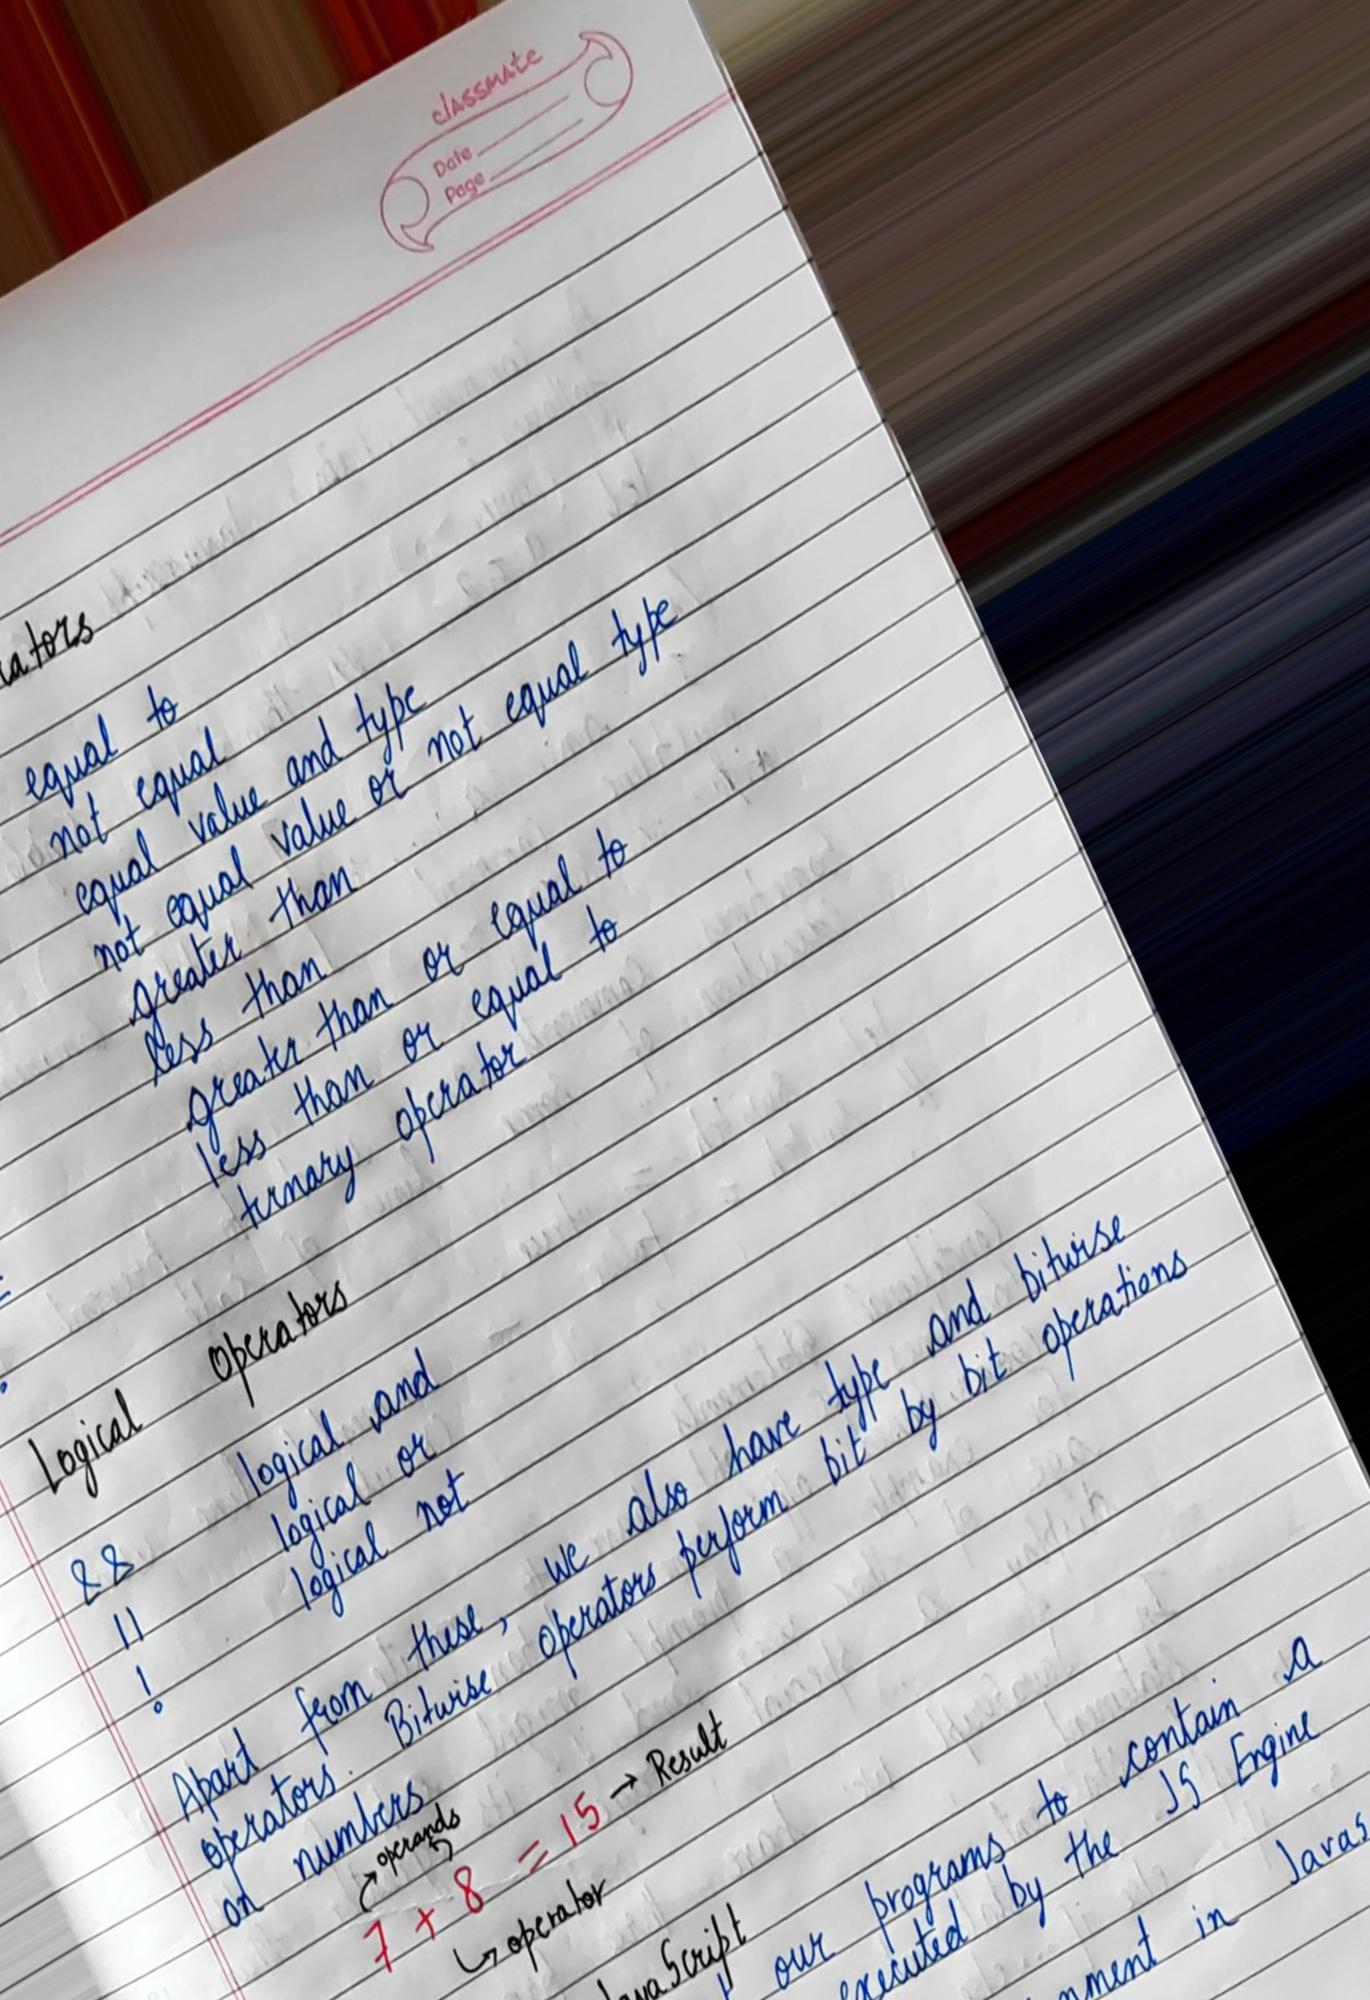 classmate
Date
Page
equal to
not equal
equal value and type
not equal value or not equal type
greater than
less than
greater than or equal to
less than or equal to
ternary operator
Logical operators
&& logical and
|| logical or
! logical not
Apart from these, we also have type and bitwise
operators. Bitwise operators perform bit by bit operations
on numbers
operands
7 + 8 = 15 → Result
operator
our programs to contain a
executed by the JS Engine
in